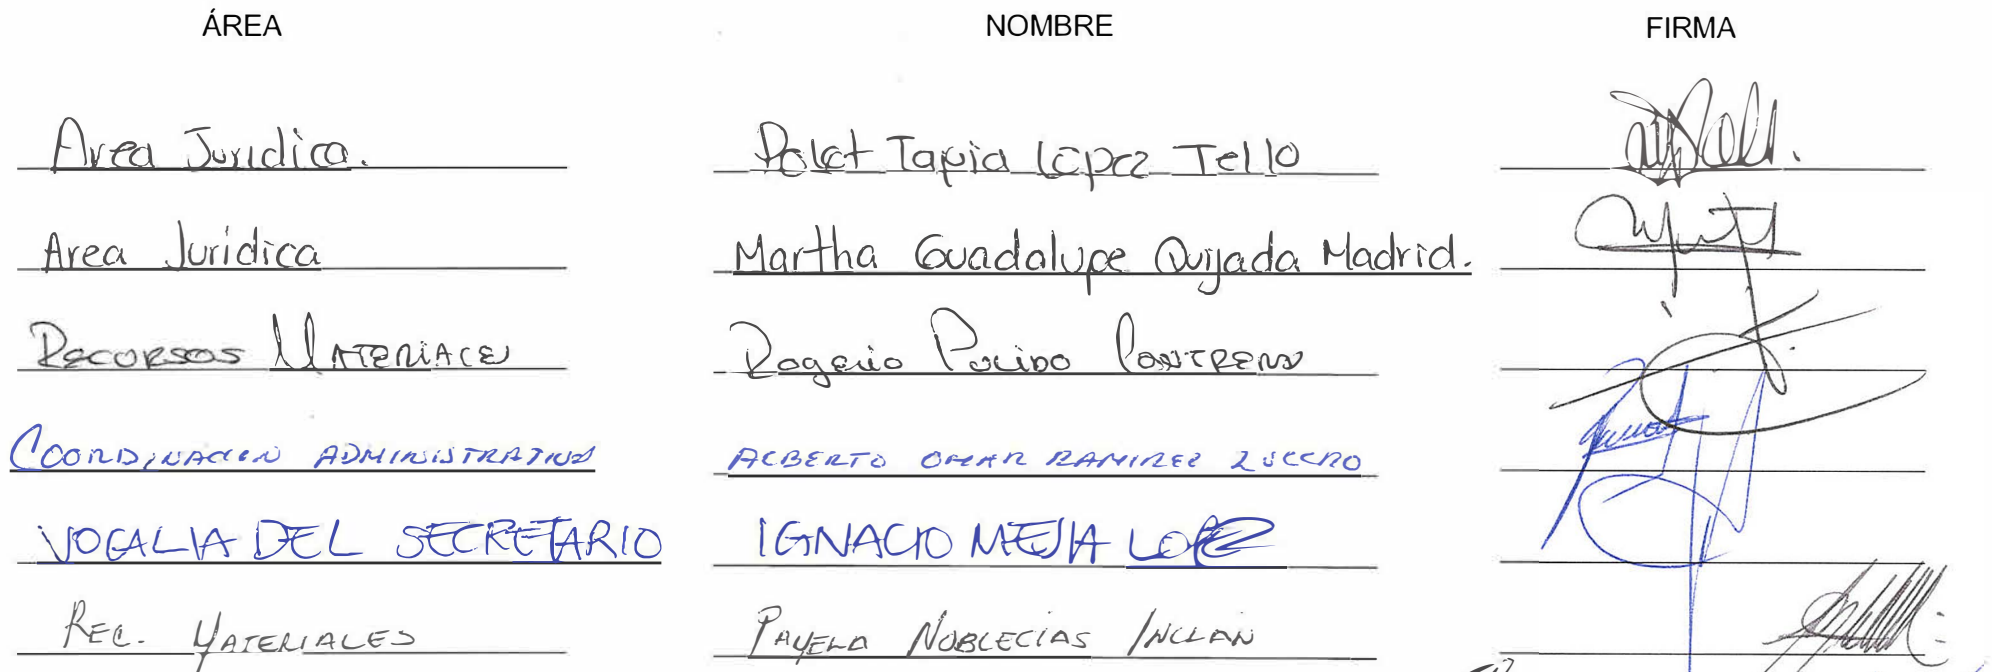 ÁREA NOMBRE FIRMA
Area Juridica. Polet Tapia López Tello
Area Jurídica Martha Guadalupe Quijada Madrid.
Recursos Materiales Rogelio Pulido Contreras
COORDINACION ADMINISTRATIVA ALBERTO OMAR RAMIREZ LUCERO
VOCALIA DEL SECRETARIO IGNACIO MEJIA LOPEZ
REC. MATERIALES PAMELA NOBLECIAS INCLAN